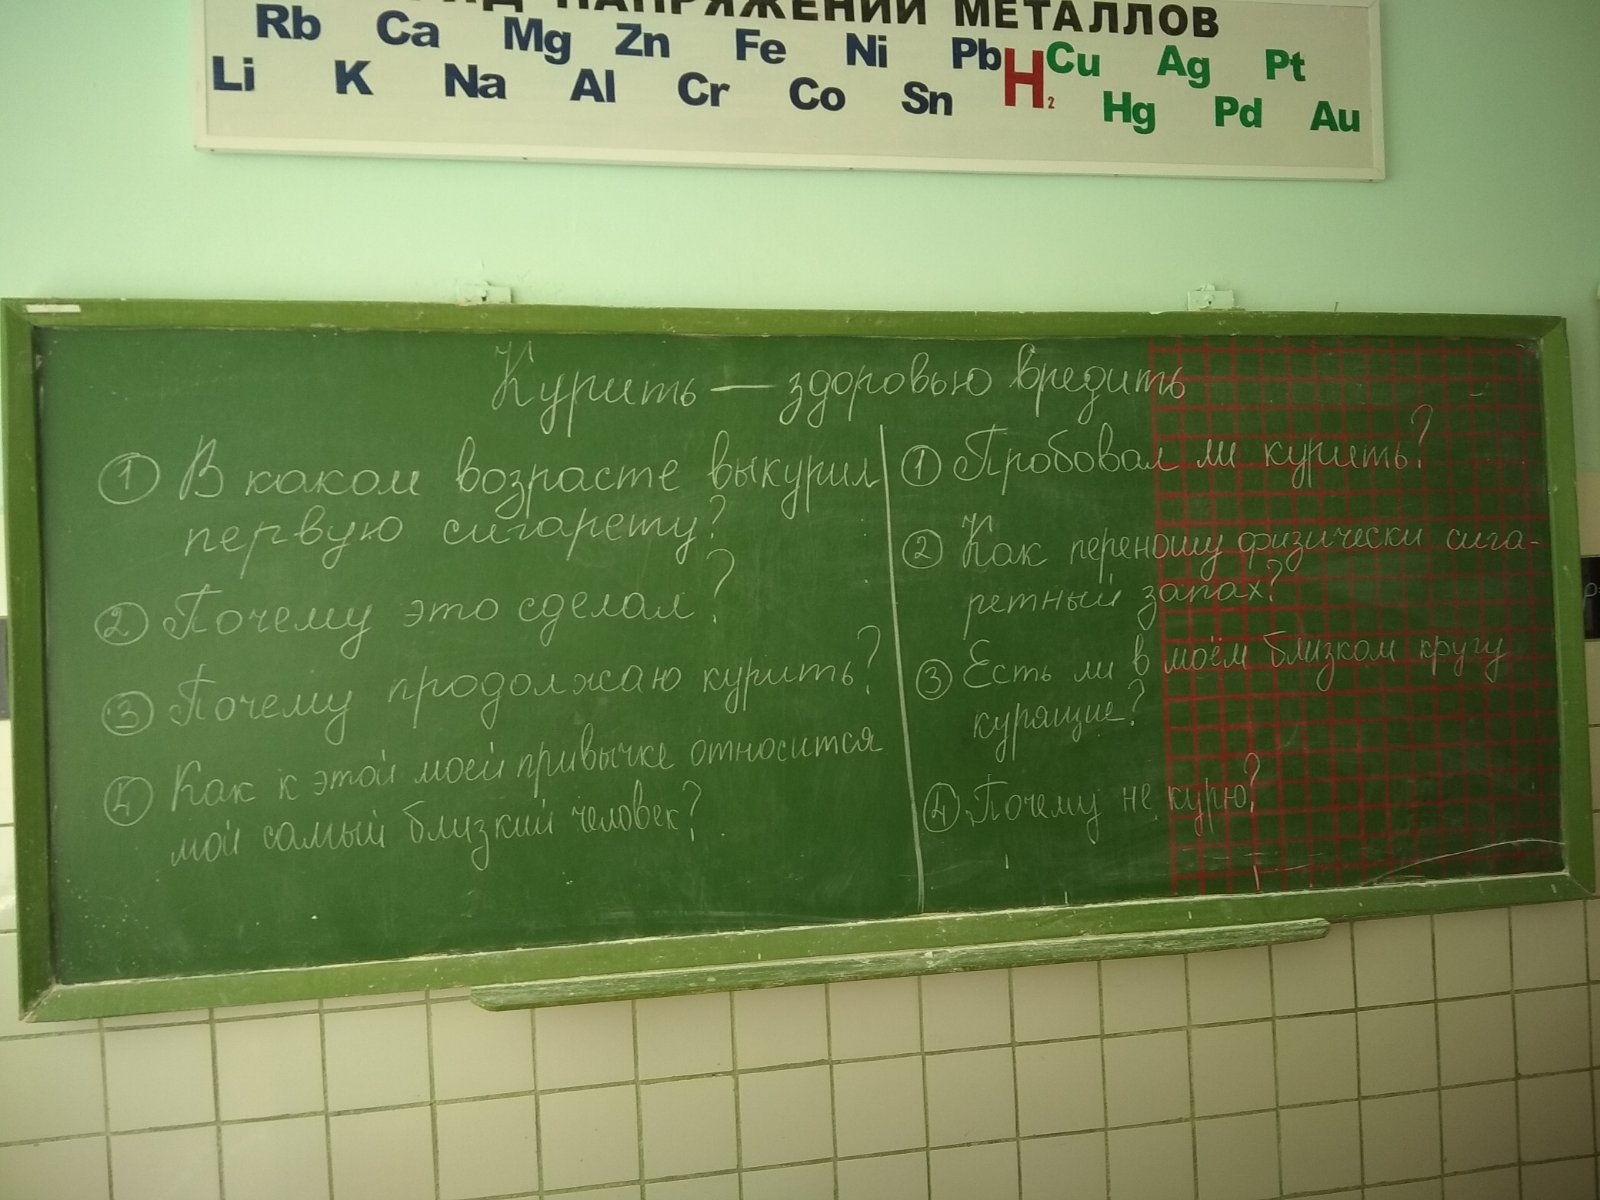 НАПРЯЖЕНИЙ МЕТАЛЛОВ
Rb Ca Mg Zn Fe Ni Pb H2 Cu Ag Pt
Li K Na Al Cr Co Sn Hg Pd Au
Курить — здоровью вредить
1 В каком возрасте выкурил
первую сигарету?
2 Почему это сделал?
3 Почему продолжаю курить?
4 Как к этой моей привычке относится
мой самый близкий человек?
1 Пробовал ли курить?
2 Как переношу физически сига-
ретный запах?
3 Есть ли в моём близком кругу
курящие?
4 Почему не курю?